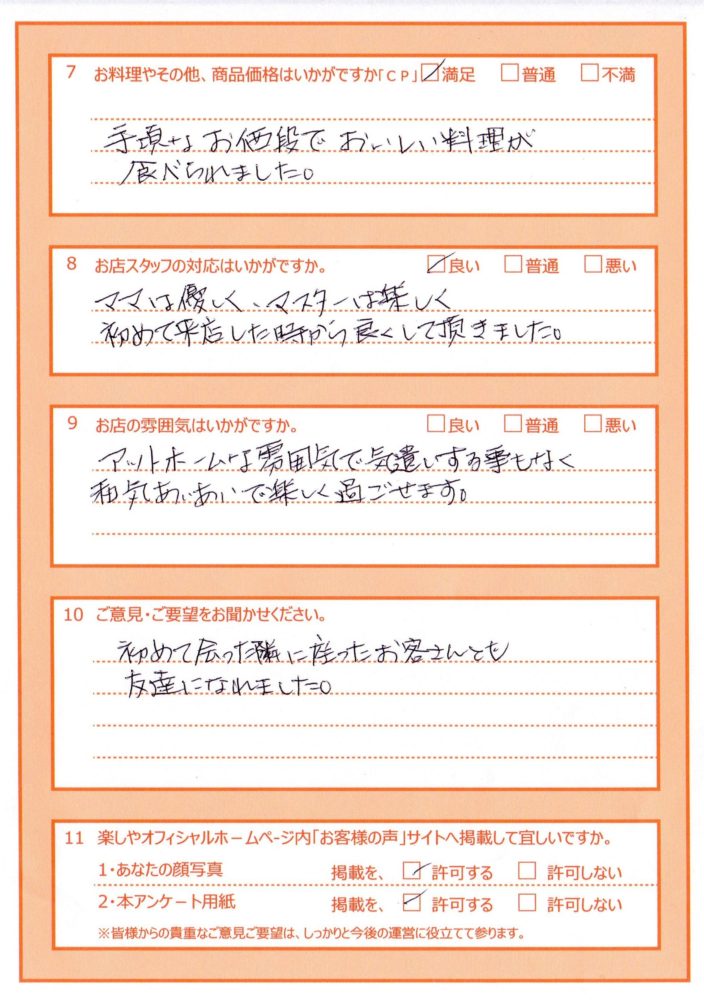 7 お料理やその他、商品価格はいかがですか「CP」 ☑満足 □普通 □不満
手頃なお値段でおいしい料理が
食べられました。
8 お店スタッフの対応はいかがですか。 ☑良い □普通 □悪い
ママは優しく、マスターは楽しく
初めて来店した時から良くして頂きました。
9 お店の雰囲気はいかがですか。 □良い □普通 □悪い
アットホームな雰囲気で気遣いする事もなく
和気あいあいで楽しく過ごせます。
10 ご意見・ご要望をお聞かせください。
初めて会った隣に座ったお客さんとも
友達になれました。
11 楽しやオフィシャルホームページ内「お客様の声」サイトへ掲載して宜しいですか。
1・あなたの顔写真 掲載を、 ☑ 許可する □ 許可しない
2・本アンケート用紙 掲載を、 ☑ 許可する □ 許可しない
※皆様からの貴重なご意見ご要望は、しっかりと今後の運営に役立てて参ります。